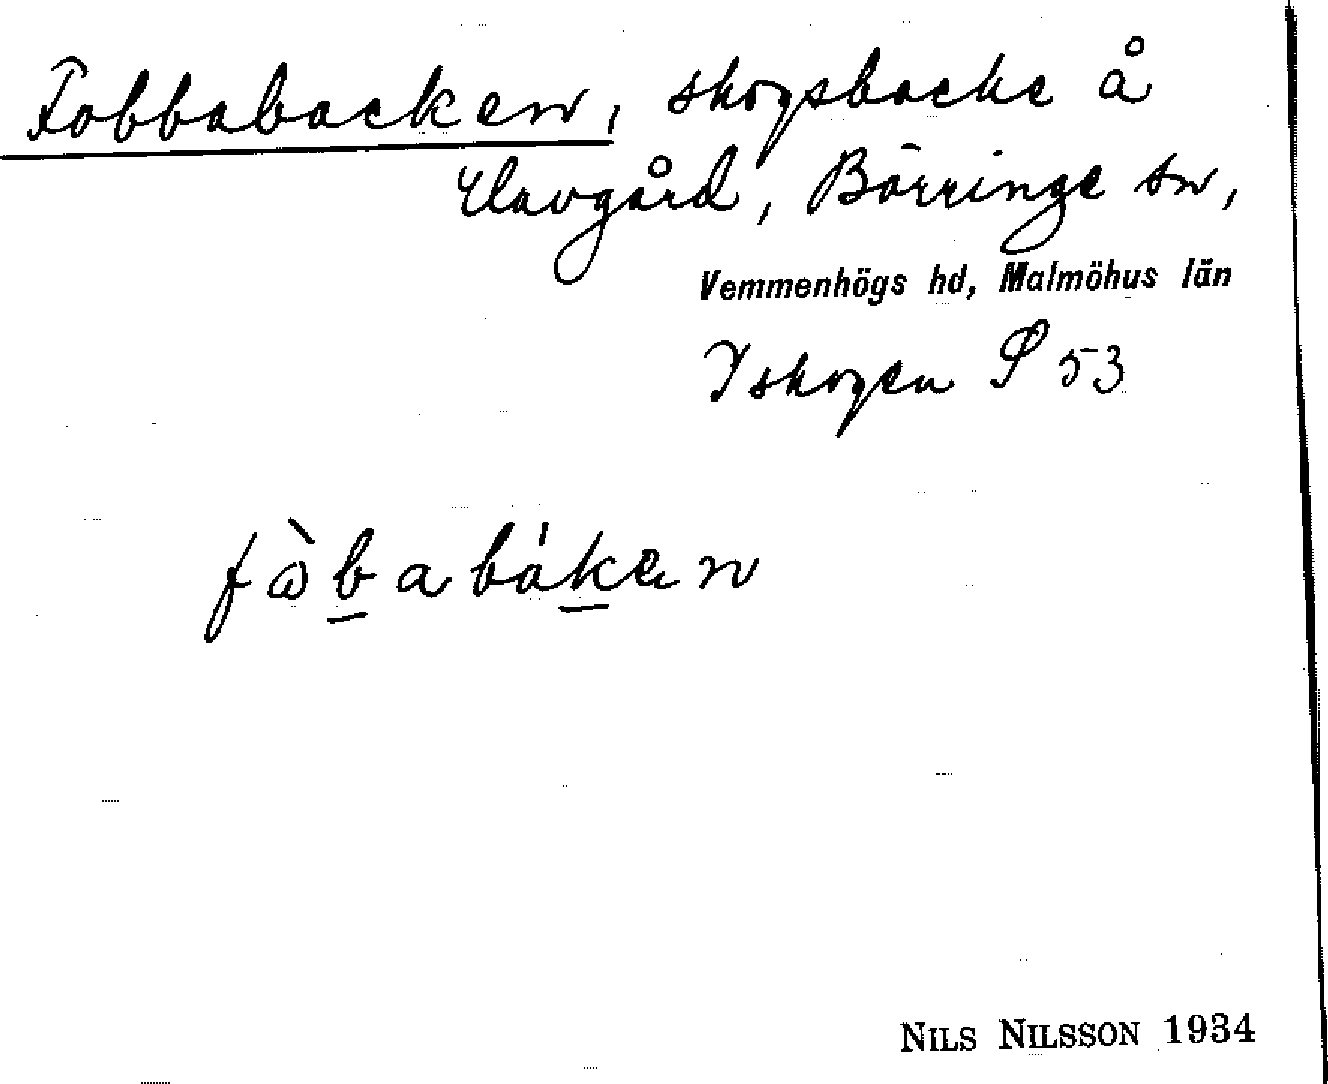 Fobbabacken, skogsbacke å
Clavgård, Börringe sn,
Vemmenhögs hd, Malmöhus län
I skogen P 53
fòbabákan
NILS NILSSON 1934